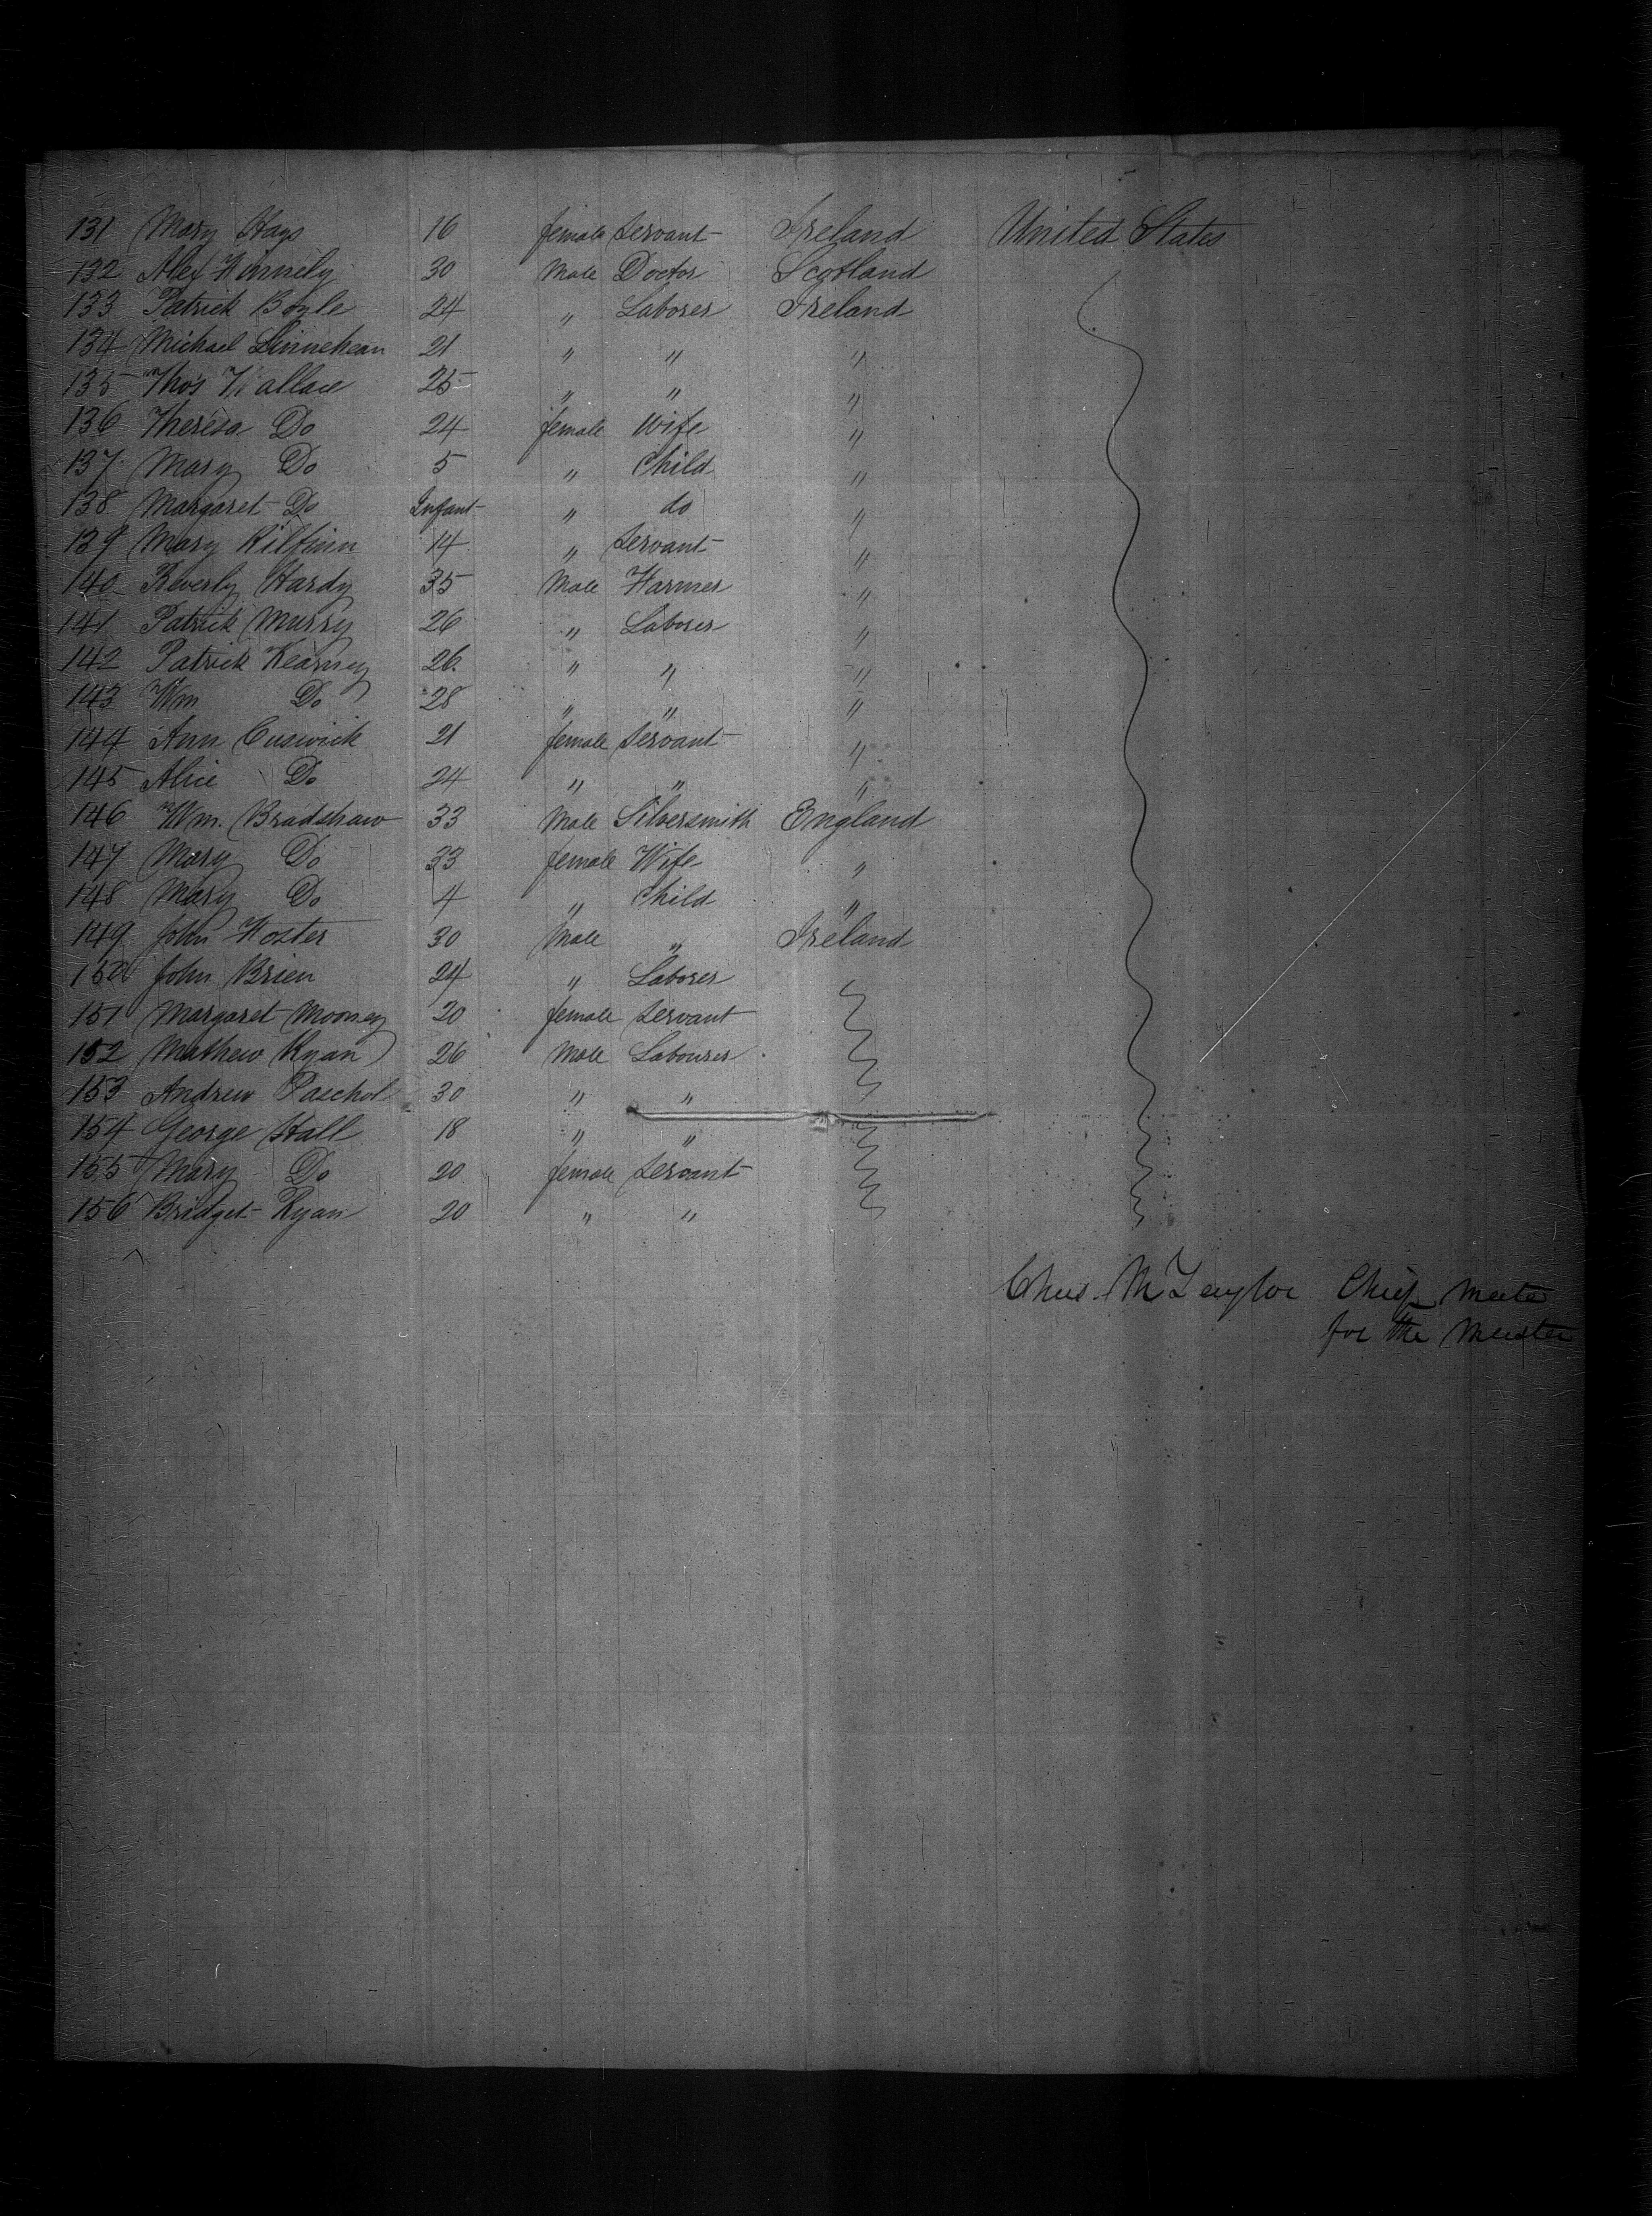 131 Mary Hays 16 female Servant Ireland United States
132 Alex 30 Male Doctor Scotland
133 Patrick Boyle 24 " Laborer Ireland
134 Michael Linnehean 21 " " "
135 Thos Wallace 25 " " "
136 Theresa Do 24 female Wife "
137 Mary Do 5 " Child "
138 Margaret Do Infant " do "
139 Mary Kilfinn 14 " Servant "
140 Beverly Hardy 35 Male Farmer "
141 Patrick Murry 26 " Laborer "
142 Patrick Kearney 26 " " "
143 Wm Do 28 " " "
144 Ann Cuswick 21 female Servant "
145 Alice Do 24 " " "
146 Wm. Bradshaw 33 Male Silversmith England
147 Mary Do 33 female Wife "
148 Mary Do 4 " Child "
149 John Foster 30 Male " Ireland
150 John Brien 24 " Laborer
151 Margaret Mooney 20 female Servant
152 Mathew Ryan 26 Male Labourer
153 Andrew Paschol 30 " "
154 George Hall 18 " "
155 Mary Do 20 female Servant
156 Bridget Ryan 20 " "
Chas. M Taylor Chief Mate
for the Master